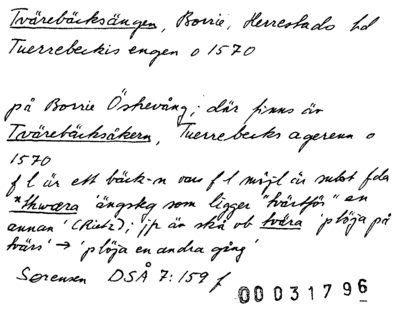 Tvärebäcksängen, Borrie, Herrestads hd
Tuerrebeckis engen o 1570
på Borrie Östrevång; där finns äv
Tvärebäcksåkern, Tuerrebecks agerenn o
1570
f l är ett bäck-n vars f l möjl är subst fda
*thwæra 'ängsteg som ligger "tvärtför" en
annan' (Rietz); jfr än skå vb tvära 'plöja på
tvärs' → 'plöja en andra gång'
Sørensen DSÅ 7:159 f
00031796